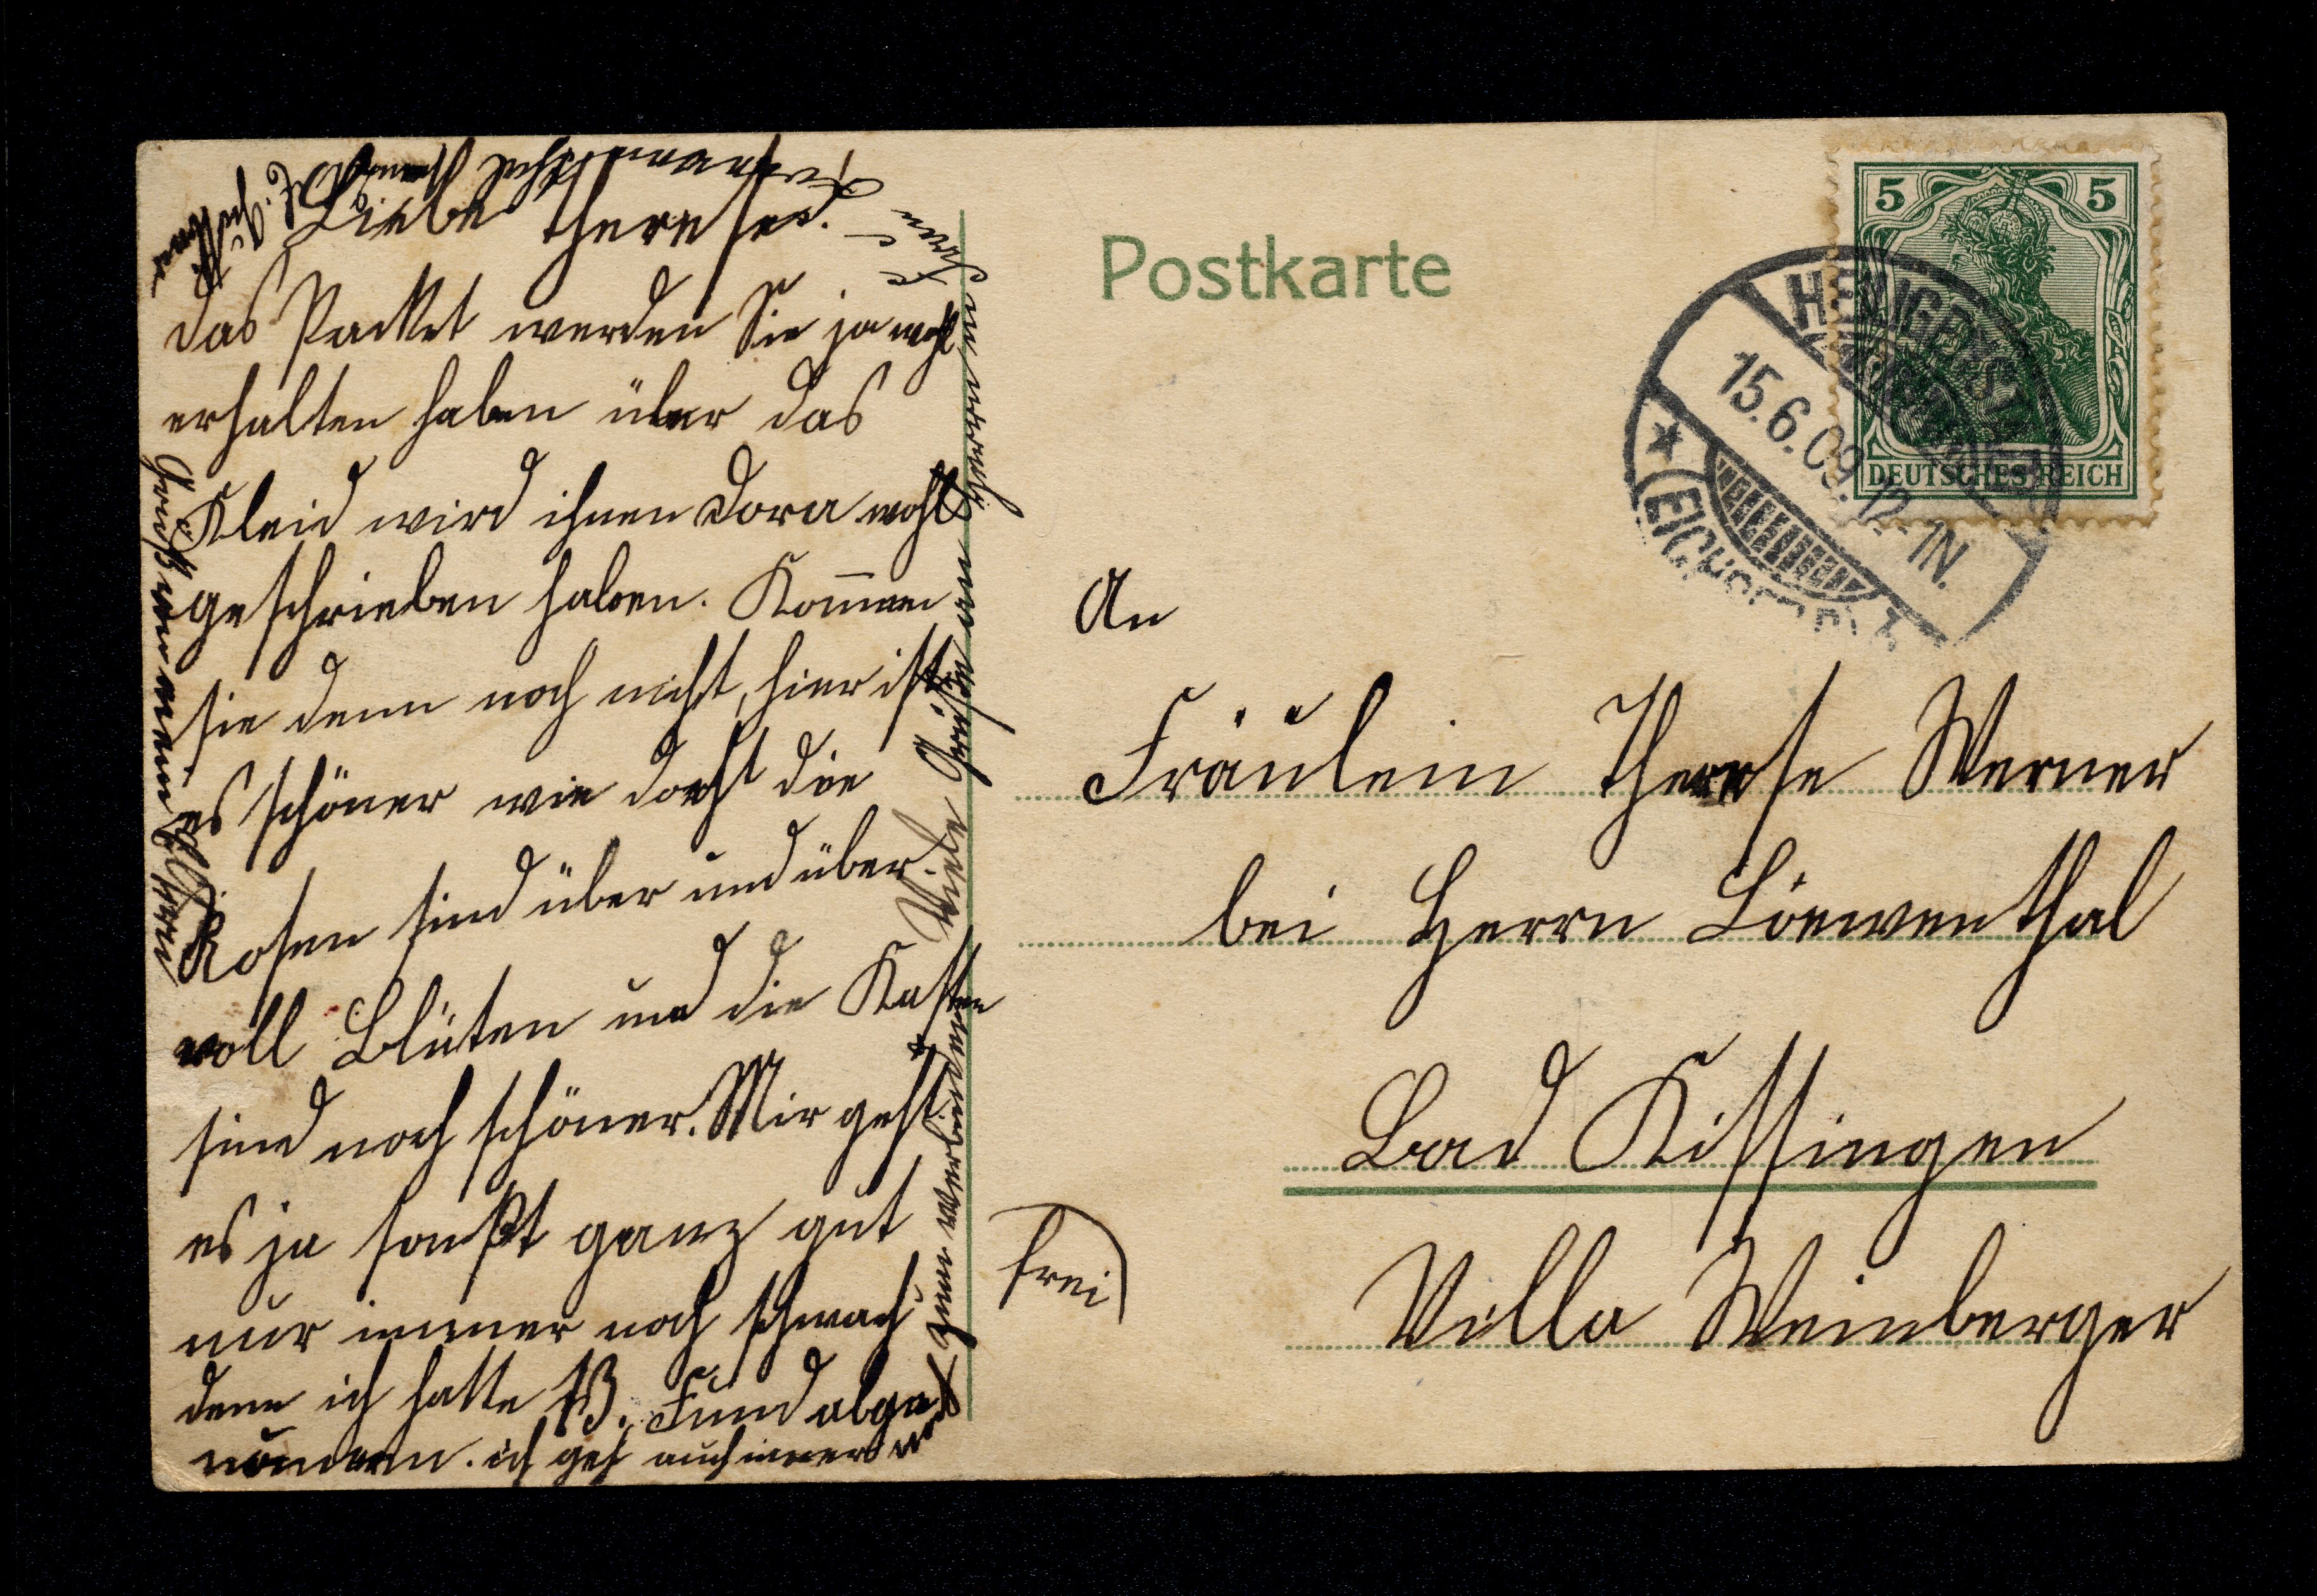 Liebe Therese.
Das Packet werden Sie ja wohl
erhalten haben über das
Kleid wird ihnen Dora wohl
geschrieben haben. Kommen
sie denn noch nicht, hier ist
es schöner wie dort die
Rosen sind über und über
voll Blüten und die Kasten
sind noch schöner. Mir geht
es ja sonst ganz gut
nur immer noch schwach
denn ich hatte 13. Fund abge
nommen. ich geh auch immer
zum verbinden
Viele Grüße an
Herrn und Frau
Gruß von mein
Postkarte
5 5
DEUTSCHES REICH
HEILIGENSTADT
15.6.09. 12-1N.
(EICHSFELD)
An
Fräulein Therese Werner
bei Herrn Löewenthal
Bad Kissingen
Villa Weinberger
frei